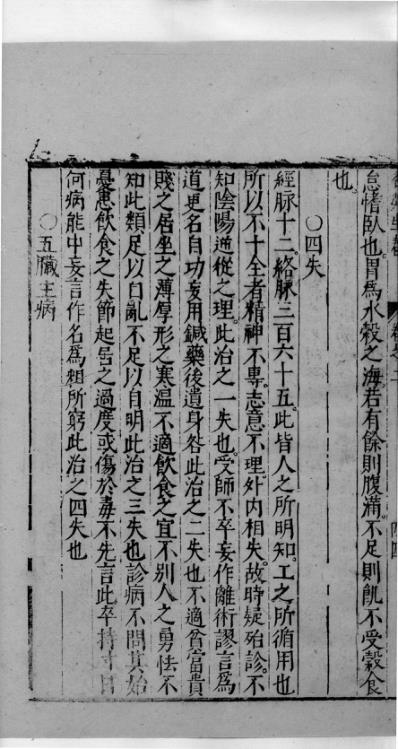 怠惰臥也胃為水穀之海若有餘則腹滿不足則飢不受穀食
也
○四失
經脉十二絡脉三百六十五此皆人之所明知工之所循用也
所以不十全者精神不專志意不理外内相失故時疑殆診不
知陰陽逆從之理此治之一失也受師不卒妄作離術謬言為
道更名自功妄用鍼藥後遺身咎此治之二失也不適貧富貴
賤之居坐之薄厚形之寒温不適飲食之宜不别人之勇怯不
知此類足以自亂不足以自明此治之三失也診病不問其始
憂患飲食之失節起居之過度或傷於毒不先言此卒持寸口
何病能中妄言作名為粗所窮此治之四失也
○五臟主病